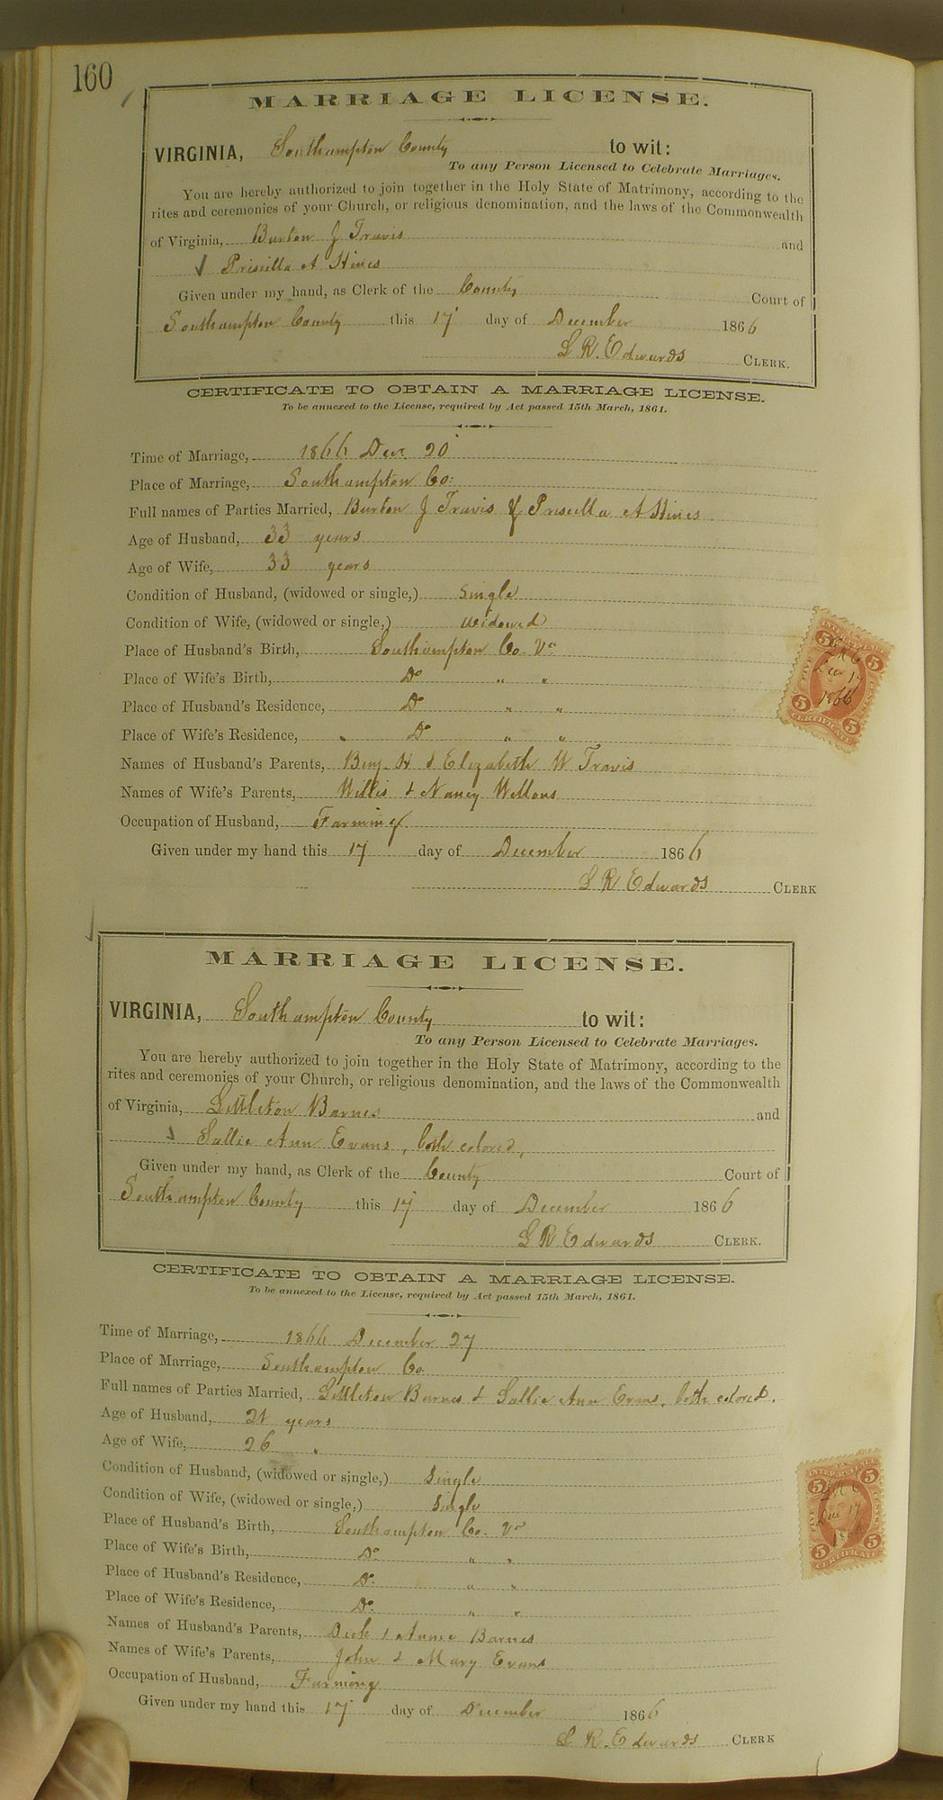 160
MARRIAGE LICENSE.
VIRGINIA, Southampton County to wit:
To any Person Licensed to Celebrate Marriages.
You are hereby authorized to join together in the Holy State of Matrimony, according to the
rites and ceremonies of your Church, or religious denomination, and the laws of the Commonwealth
of Virginia, Burton J Travis and
Priscilla A Hines
Given under my hand, as Clerk of the County Court of
Southampton County this 17 day of December 1866
L R. Edwards CLERK.
CERTIFICATE TO OBTAIN A MARRIAGE LICENSE.
To be annexed to the License, required by Act passed 15th March, 1861.
Time of Marriage, 1866 Dec 20
Place of Marriage, Southampton Co:
Full names of Parties Married, Burton J Travis & Priscilla A Hines
Age of Husband, 33 years
Age of Wife, 33 years
Condition of Husband, (widowed or single,) Single
Condition of Wife, (widowed or single,) widowed
Place of Husband's Birth, Southampton Co. Va
Place of Wife's Birth, Do " "
Place of Husband's Residence, Do " "
Place of Wife's Residence, Do " "
Names of Husband's Parents, Benj. H & Elizabeth W Travis
Names of Wife's Parents, Willis & Nancy Wellons
Occupation of Husband, Farming
Given under my hand this 17 day of December 1866
L R Edwards CLERK
5 5
Dec 17
1866
5 5
CERTIFICATE
MARRIAGE LICENSE.
VIRGINIA, Southampton County to wit:
To any Person Licensed to Celebrate Marriages.
You are hereby authorized to join together in the Holy State of Matrimony, according to the
rites and ceremonies of your Church, or religious denomination, and the laws of the Commonwealth
of Virginia, Littleton Barnes and
Sallie Ann Evans, both colored,
Given under my hand, as Clerk of the County Court of
Southampton County this 17 day of December 1866
L R Edwards CLERK.
CERTIFICATE TO OBTAIN A MARRIAGE LICENSE.
To be annexed to the License, required by Act passed 15th March, 1861.
Time of Marriage, 1866 December 27
Place of Marriage, Southampton Co.
Full names of Parties Married, Littleton Barnes & Sallie Ann Evans, both colored.
Age of Husband, 21 years
Age of Wife, 26 "
Condition of Husband, (widowed or single,) Single
Condition of Wife, (widowed or single,) Single
Place of Husband's Birth, Southampton Co. Va
Place of Wife's Birth, Do " "
Place of Husband's Residence, Do " "
Place of Wife's Residence, Do " "
Names of Husband's Parents, Dick & Annie Barnes
Names of Wife's Parents, John & Mary Evans
Occupation of Husband, Farming
Given under my hand this 17 day of December 1866
L R. Edwards CLERK
5 5
Dec 17
5 5
CERTIFICATE